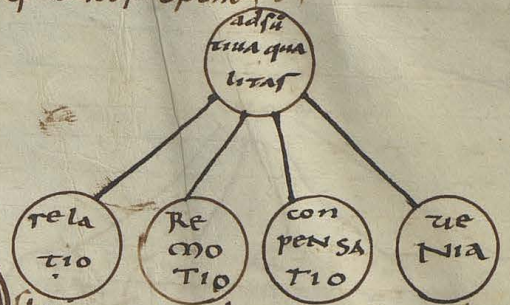 adsū
tiua qua
litas
rela
tio
Re
mo
Tio
con
pensa
Tio
ue
Nia